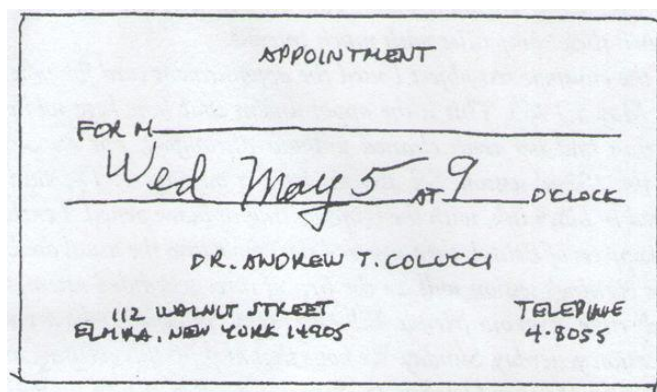 APPOINTMENT
FOR M
Wed May 5 AT 9 O'CLOCK
DR. ANDREW T. COLUCCI
112 WALNUT STREET
ELMIRA, NEW YORK 14905
TELEPHONE
4-8055